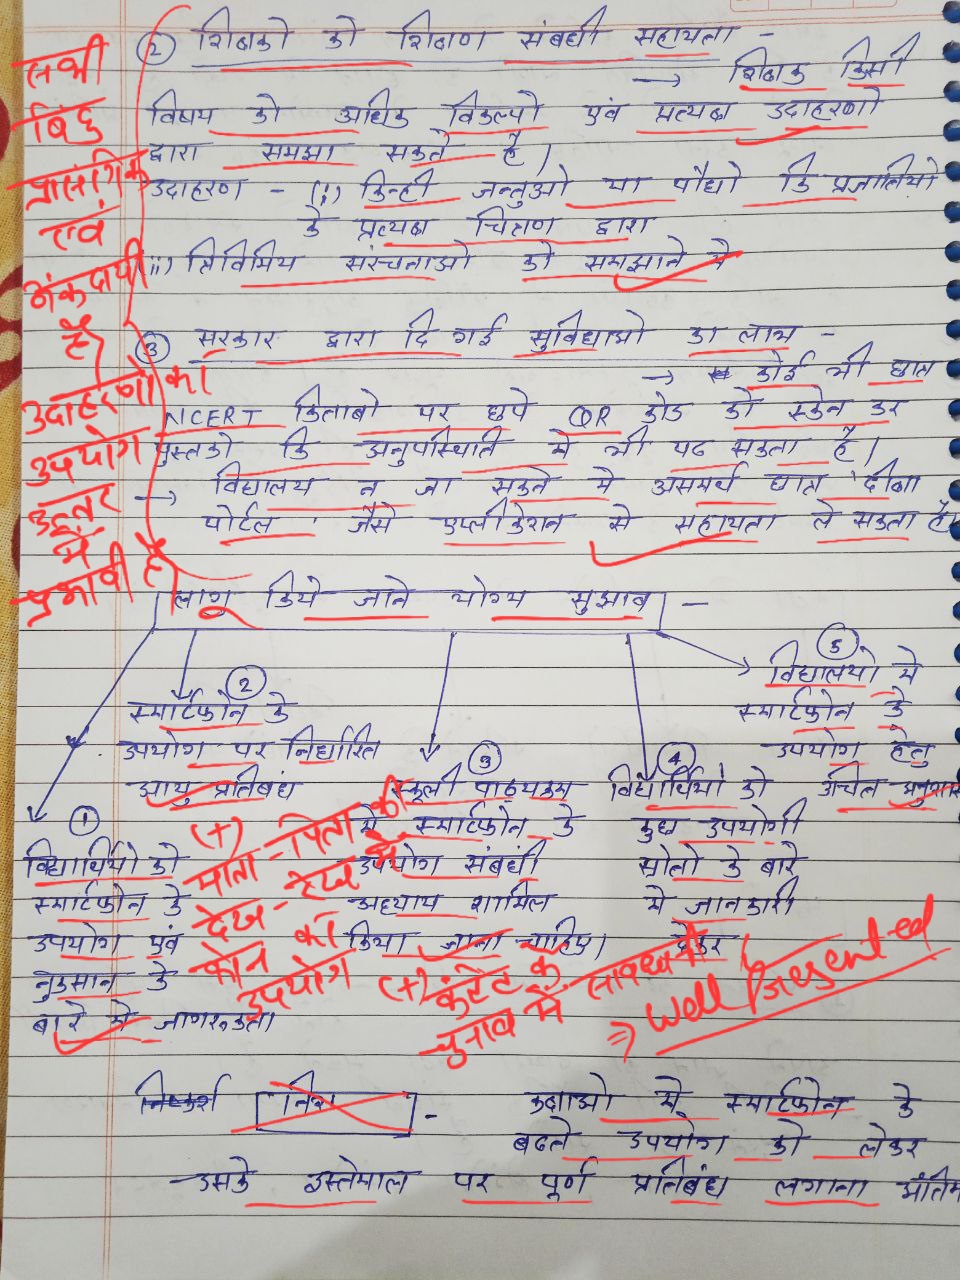 ② शिक्षको को शिक्षण संबंधी सहायता -
→ शिक्षक किसी
विषय को अधिक विकल्पो एवं प्रत्यक्ष उदाहरणो
द्वारा समझा सकते है।
उदाहरण - (i) किन्ही जन्तुओ या पौधो कि प्रजातियो
के प्रत्यक्ष चित्रण द्वारा
(ii) त्रिविमिय संरचनाओ को समझाने मे
सभी
बिंदु
प्रासंगिक
एवं
अंकदायी
हैं
उदाहरणों का
उपयोग
उत्तर
में
प्रभावी है
③ सरकार द्वारा दि गई सुविधाओ का लाभ -
→ कोई भी छात्र
NCERT किताबो पर छपे QR कोड को स्केन कर
पुस्तको कि अनुपस्थिति मे भी पढ सकता है।
→ विद्यालय न जा सकने मे असमर्थ छात्र 'दीक्षा
पोर्टल' जैसे एप्लीकेशन से सहायता ले सकता है।
लागू किये जाने योग्य सुझाव -
①
विद्यार्थियो को
स्मार्टफोन के
उपयोग एवं
नुकसान के
बारे मे जागरूकता
②
स्मार्टफोन के
उपयोग पर निर्धारित
आयु प्रतिबंध
(+)
माता-पिता की
देख-रेख में
फोन का
उपयोग
③
स्कूली पाठ्यक्रम
मे स्मार्टफोन के
उपयोग संबंधी
अध्याय शामिल
किया जाना चाहिए।
(+) कंटेंट के
चुनाव में सावधानी
④
विद्यार्थियो को
कुछ उपयोगी
स्रोतो के बारे
मे जानकारी
देकर
⑤
विद्यालयो मे
स्मार्टफोन के
उपयोग हेतु
उचित
⇒ Well Presented
निष्कर्ष
- कक्षाओ मे स्मार्टफोन के
बढते उपयोग को लेकर
उसके इस्तेमाल पर पूर्ण प्रतिबंध लगाना अंतिम